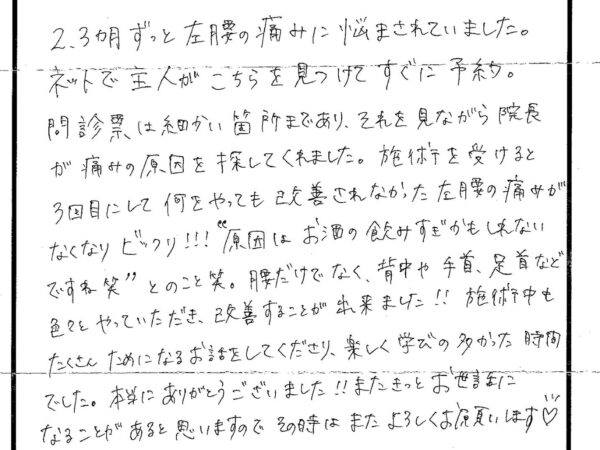 2、3カ月ずっと左腰の痛みに悩まされていました。
ネットで主人がこちらを見つけてすぐに予約。
問診票は細かい箇所まであり、それを見ながら院長
が痛みの原因を探してくれました。施術を受けると
3回目にして何をやっても改善されなかった左腰の痛みが
なくなりビックリ!!!“原因はお酒の飲みすぎかもしれない
ですね笑”とのこと笑。腰だけでなく、背中や手首、足首など
色々とやっていただき、改善することが出来ました!!施術中も
たくさんためになるお話をしてくださり、楽しく学びの多かった時間
でした。本当にありがとうございました!!またきっとお世話に
なることがあると思いますのでその時はまたよろしくお願いします♡